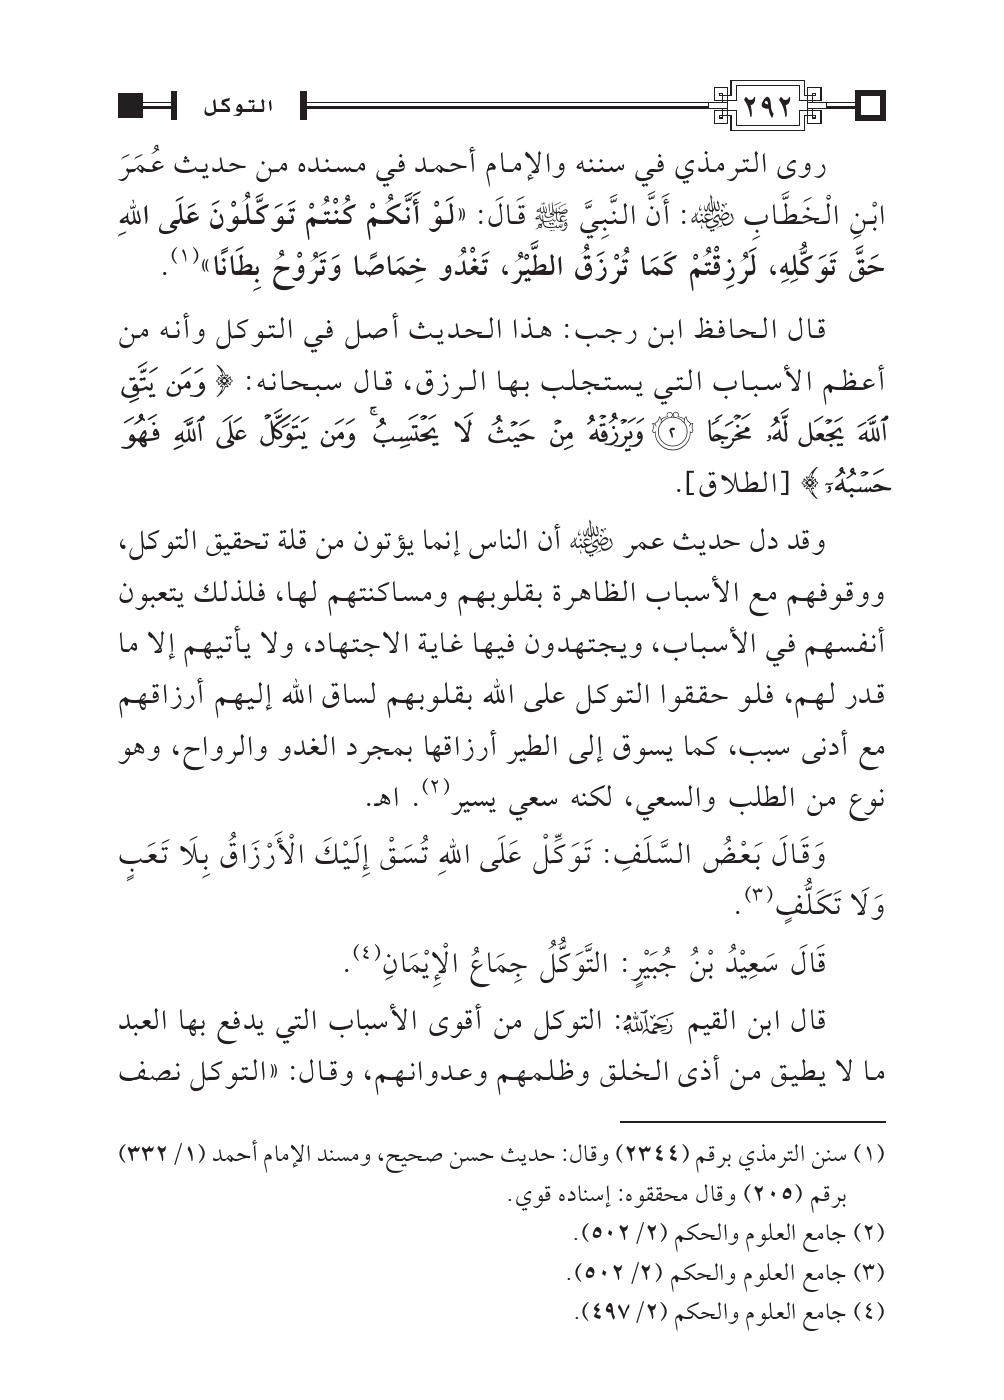 ٢٩٢ التوكل
روى الترمذي في سننه والإمام أحمد في مسنده من حديث عُمَرَ
ابْنِ الْخَطَّابِ ﵁: أَنَّ النَّبِيَّ ﷺ قَالَ: «لَوْ أَنَّكُمْ كُنْتُمْ تَوَكَّلُوْنَ عَلَى اللهِ
حَقَّ تَوَكُّلِهِ، لَرُزِقْتُمْ كَمَا تُرْزَقُ الطَّيْرُ، تَغْدُو خِمَاصًا وَتَرُوْحُ بِطَانًا»(١).
قال الحافظ ابن رجب: هذا الحديث أصل في التوكل وأنه من
أعظم الأسباب التي يستجلب بها الرزق، قال سبحانه: ﴿ وَمَن يَتَّقِ
ٱللَّهَ يَجْعَل لَّهُۥ مَخْرَجًا ۝٢ وَيَرْزُقْهُ مِنْ حَيْثُ لَا يَحْتَسِبُ ۚ وَمَن يَتَوَكَّلْ عَلَى ٱللَّهِ فَهُوَ
حَسْبُهُۥٓ ﴾ [الطلاق].
وقد دل حديث عمر ﵁ أن الناس إنما يؤتون من قلة تحقيق التوكل،
ووقوفهم مع الأسباب الظاهرة بقلوبهم ومساكنتهم لها، فلذلك يتعبون
أنفسهم في الأسباب، ويجتهدون فيها غاية الاجتهاد، ولا يأتيهم إلا ما
قدر لهم، فلو حققوا التوكل على الله بقلوبهم لساق الله إليهم أرزاقهم
مع أدنى سبب، كما يسوق إلى الطير أرزاقها بمجرد الغدو والرواح، وهو
نوع من الطلب والسعي، لكنه سعي يسير(٢). اهـ.
وَقَالَ بَعْضُ السَّلَفِ: تَوَكِّلْ عَلَى اللهِ تُسَقْ إِلَيْكَ الْأَرْزَاقُ بِلَا تَعَبٍ
وَلَا تَكَلُّفٍ(٣).
قَالَ سَعِيْدُ بْنُ جُبَيْرٍ: التَّوَكُّلُ جِمَاعُ الْإِيْمَانِ(٤).
قال ابن القيم ﵀: التوكل من أقوى الأسباب التي يدفع بها العبد
ما لا يطيق من أذى الخلق وظلمهم وعدوانهم، وقال: «التوكل نصف
(١) سنن الترمذي برقم (٢٣٤٤) وقال: حديث حسن صحيح، ومسند الإمام أحمد (١/ ٣٣٢)
برقم (٢٠٥) وقال محققوه: إسناده قوي.
(٢) جامع العلوم والحكم (٢/ ٥٠٢).
(٣) جامع العلوم والحكم (٢/ ٥٠٢).
(٤) جامع العلوم والحكم (٢/ ٤٩٧).